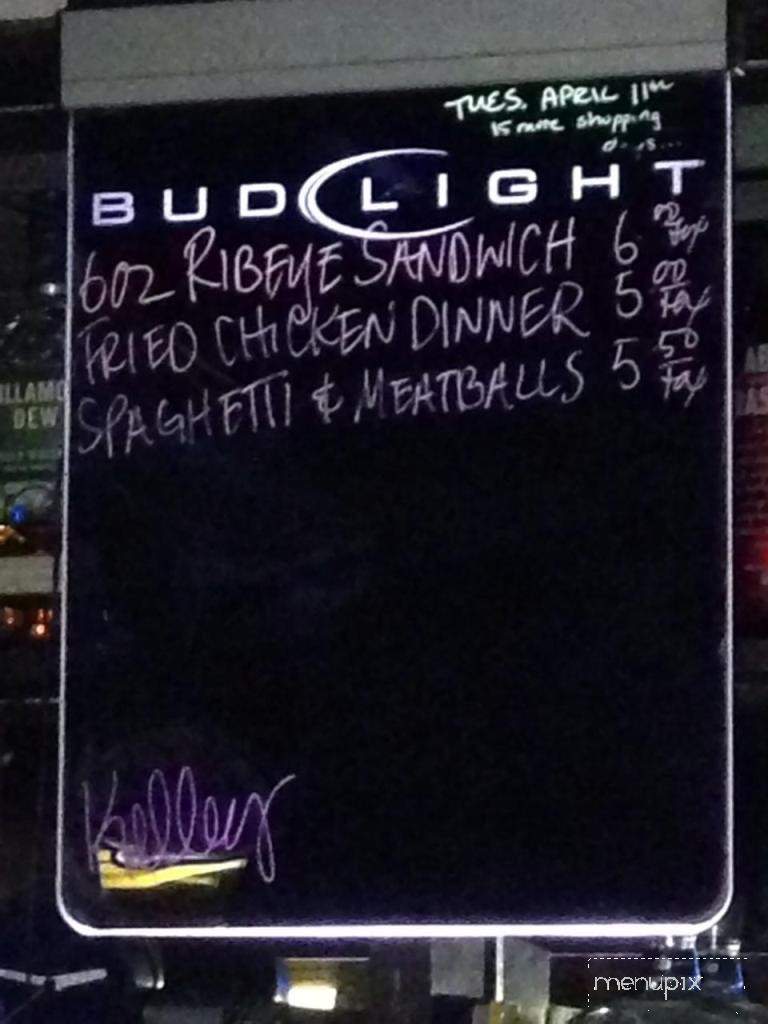 TUES. APRIL 11th
15 more shopping
BUD LIGHT
6oz RIBEYE SANDWICH 6 00 Tax
FRIED CHICKEN DINNER 5 00 Tax
SPAGHETTI & MEATBALLS 5 50 Tax
LLAMO
DEW
Kelley
menupix